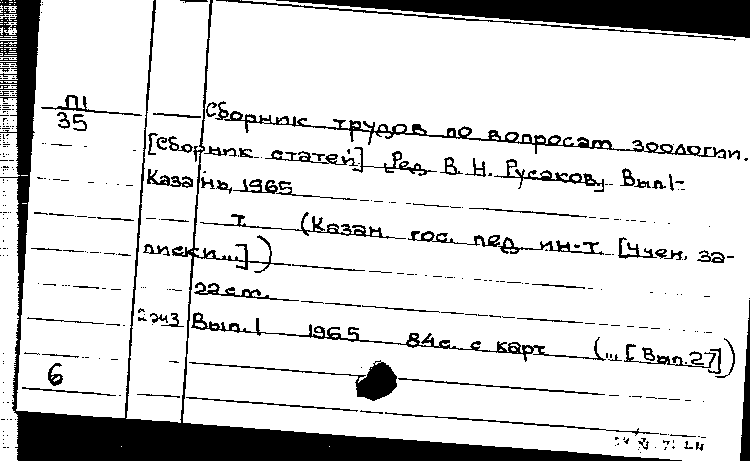 П1
35
Сборник трудов по вопросам зоологии.
[Сборник статей] Ред. В. Н. Русаков, Вып.1-
Казань, 1965
т. (Казан. гос. пед. ин-т. [Учен. за-
писки...])
22 см.
2 экз Вып.1 1965 84 с. с карт (... [Вып.27])
6